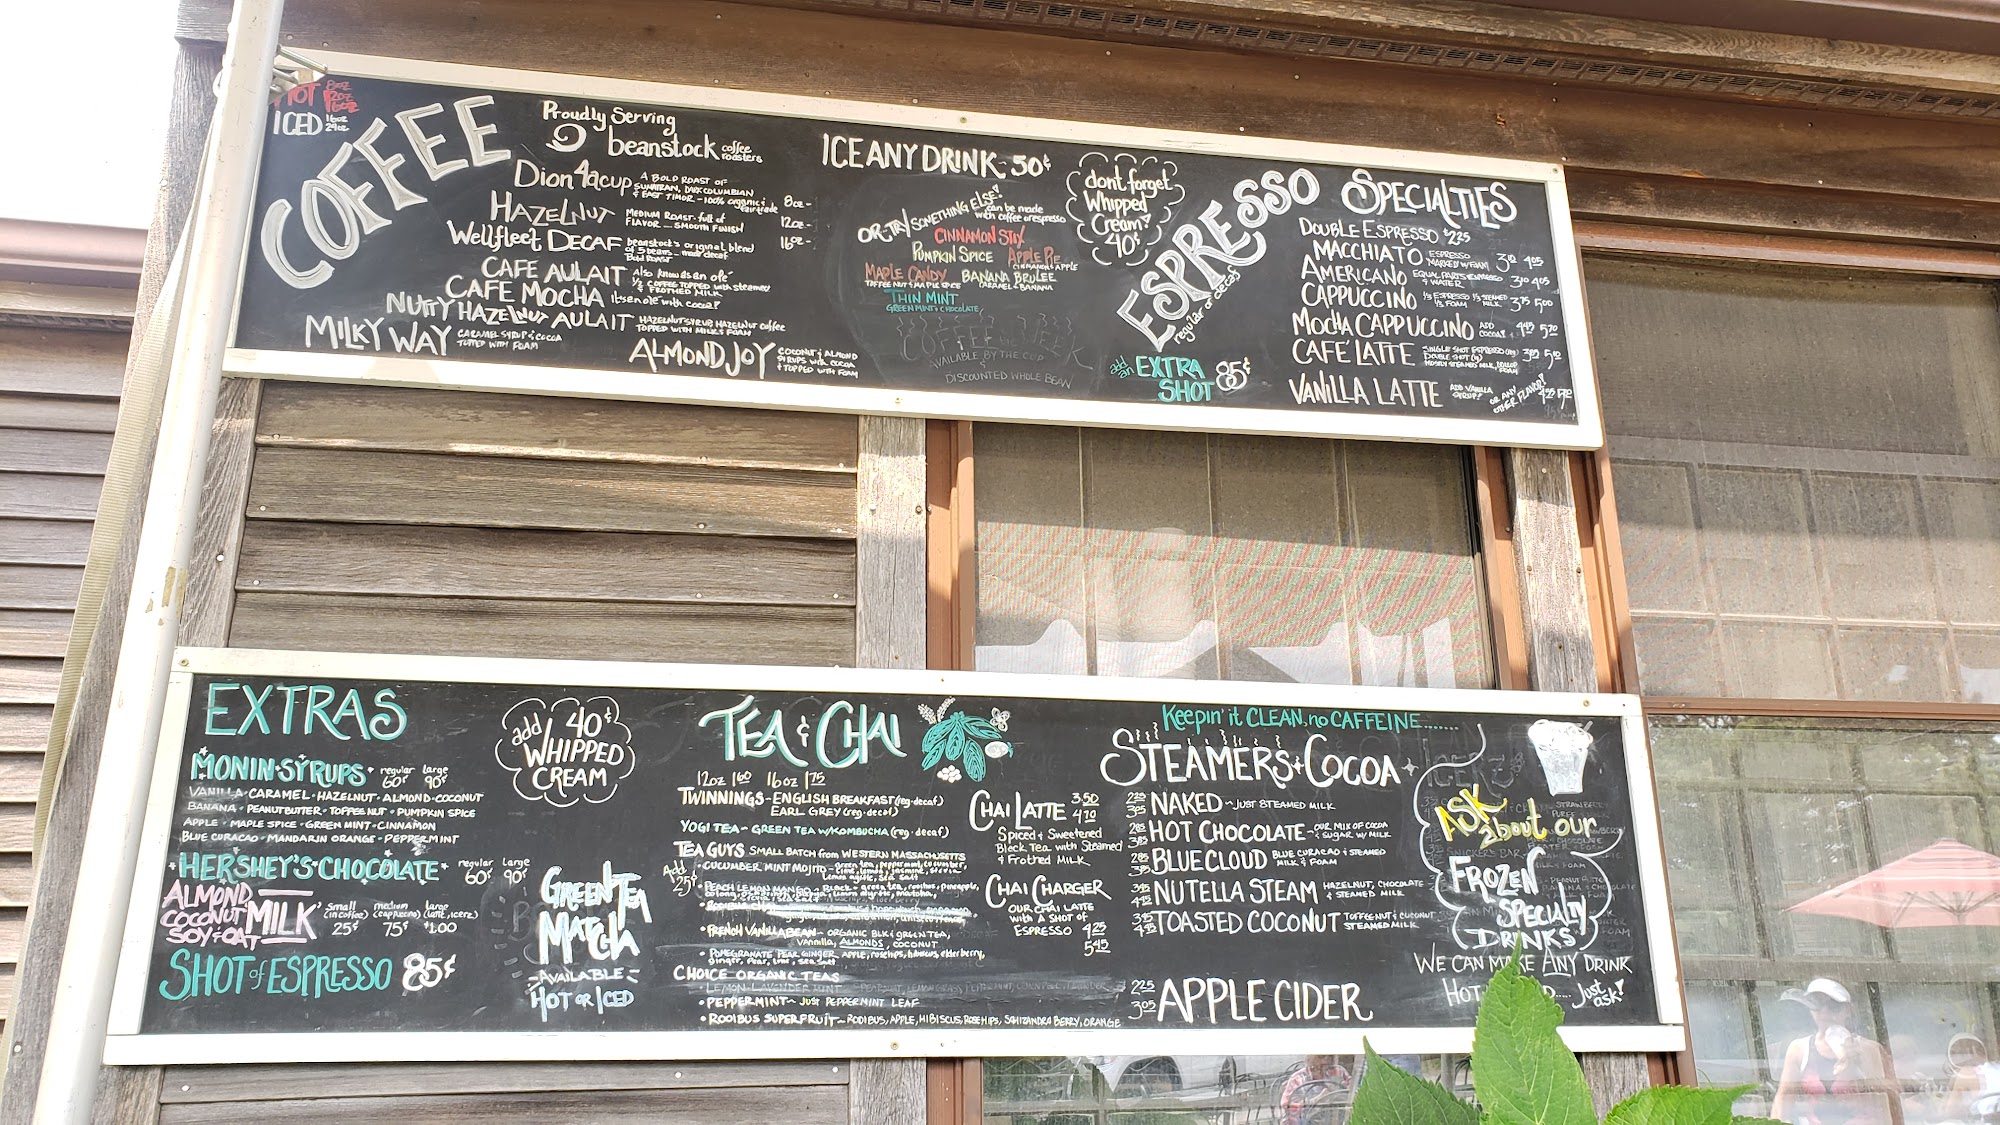 HOT 8oz 12oz 16oz
ICED 16oz 24oz
COFFEE
Proudly Serving
beanstock coffee roasters
Dion4acup A BOLD ROAST OF SUMATRAN, DARK COLUMBIAN & EAST TIMOR - 100% organic & fair trade 8oz -
HAZELNUT MEDIUM ROAST - full of FLAVOR - SMOOTH FINISH 12oz -
Wellfleet DECAF beanstock's original blend of 5 beans - made decaf Bold ROAST 16oz -
CAFE AULAIT Also known as an ole' 1/2 COFFEE TOPPED with steamed & FROTHED MILK
CAFE MOCHA its an ole with cocoa
NUTTY HAZELNUT AULAIT HAZELNUT SYRUP, HAZELNUT coffee TOPPED with MILK & FOAM
MILKY WAY CARAMEL SYRUP & COCOA TOPPED WITH FOAM
ALMOND JOY COCONUT & ALMOND SYRUPS with COCOA & TOPPED with FOAM
ICE ANY DRINK - 50¢
OR-TRY SOMETHING ELSE! can be made with coffee or espresso
CINNAMON STIX
PUMPKIN SPICE APPLE PIE CINNAMON & APPLE
MAPLE CANDY TOFFEE NUT & MAPLE SPICE BANANA BRULEE CARAMEL & BANANA
THIN MINT
GREEN MINT & CHOCOLATE
COFFEE of the WEEK
AVAILABLE BY THE CUP
&
DISCOUNTED WHOLE BEAN
dont forget
Whipped
Cream!
40¢
ESPRESSO
regular or decaf
add an EXTRA SHOT 85¢
SPECIALTIES
DOUBLE ESPRESSO $2.25
MACCHIATO ESPRESSO MARKED W/FOAM 4.05
AMERICANO EQUAL PARTS ESPRESSO & WATER 3.10 4.05
CAPPUCCINO 1/3 ESPRESSO 1/3 STEAMED MILK 1/3 FOAM 3.75 5.00
MOCHA CAPPUCCINO ADD COCOA! 4.45 5.70
CAFÉ LATTE SINGLE SHOT ESPRESSO DOUBLE SHOT MOSTLY STEAMED MILK, DOLLOP FOAM
VANILLA LATTE ADD VANILLA SYRUP! OR ANY OTHER FLAVOR!
EXTRAS
MONIN·SYRUPS regular 60¢ large 90¢
VANILLA · CARAMEL · HAZELNUT · ALMOND · COCONUT
BANANA · PEANUTBUTTER · TOFFEE NUT · PUMPKIN SPICE
APPLE · MAPLE SPICE · GREEN MINT · CINNAMON
BLUE CURACAO · MANDARIN ORANGE · PEPPERMINT
HERSHEY'S CHOCOLATE regular 60¢ large 90¢
ALMOND, COCONUT SOY & OAT MILK small (in coffee) 25¢ medium (cappuccino) 75¢ large (latte, icerz) $1.00
SHOT of ESPRESSO 85¢
add 40¢
WHIPPED
CREAM
GREEN TEA
MATCHA
AVAILABLE
HOT OR ICED
TEA & CHAI
12oz 1.60 16oz 1.75
TWINNINGS - ENGLISH BREAKFAST (reg·decaf)
EARL GREY (reg·decaf)
YOGI TEA - GREEN TEA W/KOMBUCHA (reg·decaf)
TEA GUYS SMALL BATCH from WESTERN MASSACHUSETTS
Add 25¢
· CUCUMBER MINT MOJITO - green tea, peppermint, cucumber, lime, lemon, jasmine, stevia
PEACH LEMON MANGO - Black & green tea, rooibos, pineapple,
· FRENCH VANILLA BEAN - ORGANIC BLK & GREEN TEA,
Vannilla, ALMONDS, COCONUT
· POMEGRANATE PEAR GINGER, APPLE, rosehips, hibiscus, elderberry, ginger, pear, lime, sea salt
CHOICE ORGANIC TEAS
LEMON LAVENDER MINT
· PEPPERMINT - JUST PEPPERMINT LEAF
· ROOIBUS SUPERFRUIT - ROOIBUS, APPLE, HIBISCUS, ROSEHIPS, SCHIZANDRA BERRY, ORANGE
CHAI LATTE 3.50 4.70
Spiced & Sweetened
Black Tea with Steamed
& Frothed MILK
CHAI CHARGER
OUR CHAI LATTE
WITH A SHOT OF
ESPRESSO 4.25 5.45
Keepin' it CLEAN, no CAFFEINE.......
STEAMERS & COCOA
2.25 3.05 NAKED - JUST STEAMED MILK
2.85 3.85 HOT CHOCOLATE - OUR MIX OF COCOA & SUGAR W/ MILK
2.85 3.85 BLUE CLOUD BLUE CURACAO & STEAMED MILK & FOAM
NUTELLA STEAM HAZELNUT, CHOCOLATE & STEAMED MILK
TOASTED COCONUT TOFFEE NUT & COCONUT STEAMED MILK
2.25 3.05 APPLE CIDER
ASK
about our
FROZEN
SPECIALTY
DRINKS
WE CAN MAKE ANY DRINK
HOT
Just ask!